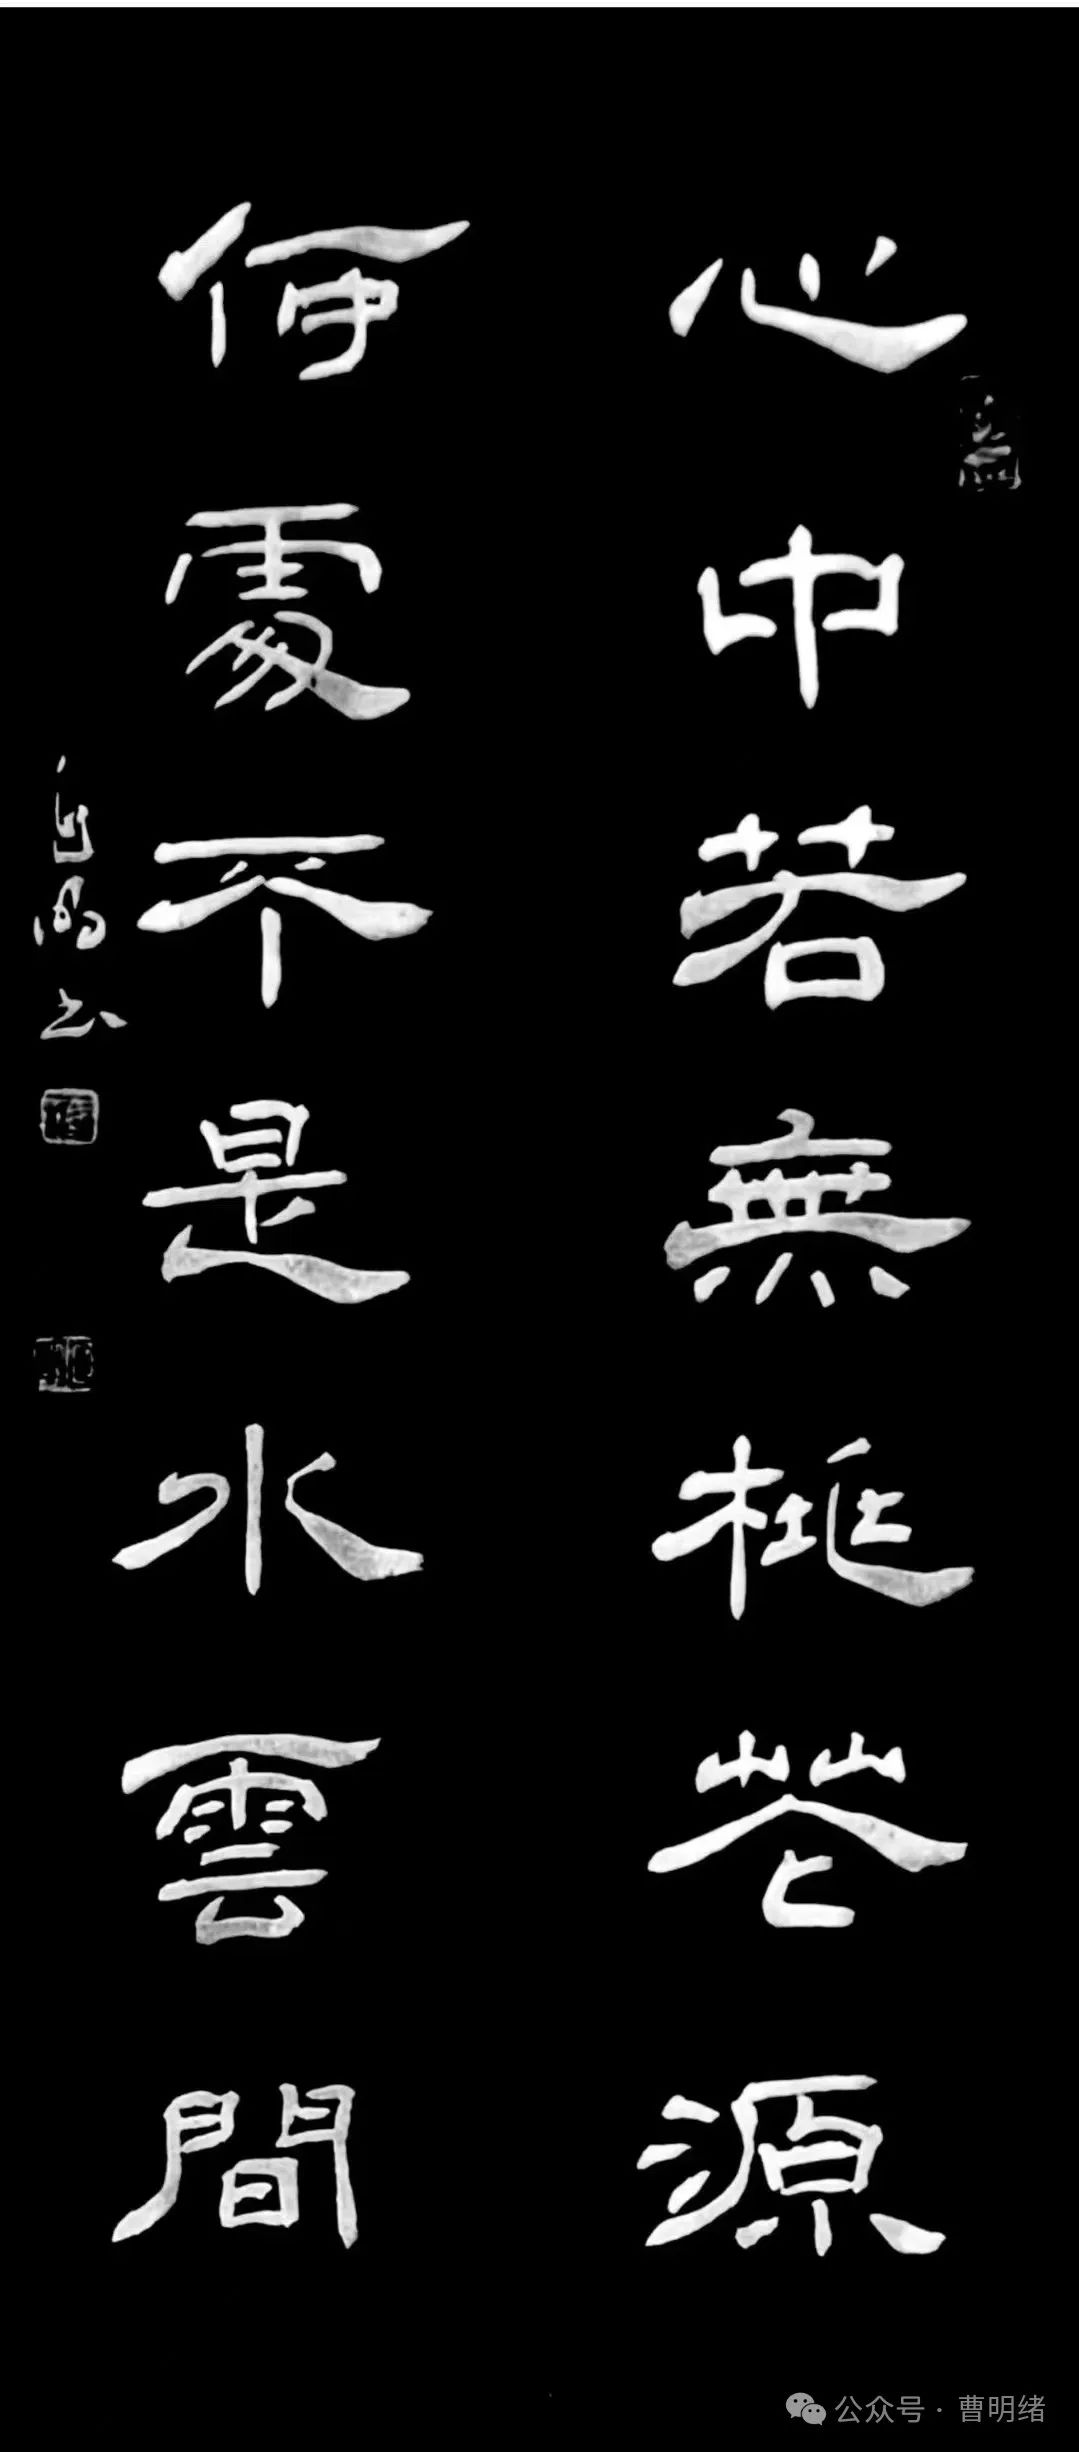 心中若無桃花源
何處不是水雲間
公众号·曹明绪